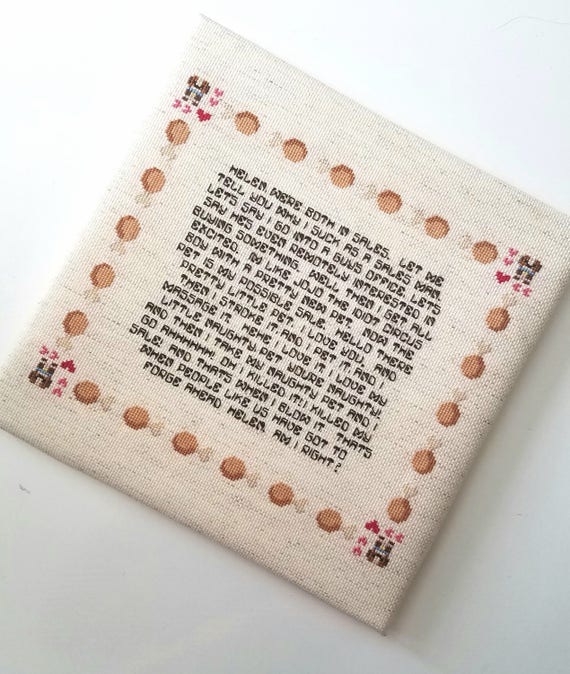 HELEN WERE BOTH IN SALES. LET ME
TELL YOU WHY I SUCK AS A SALES MAN.
LETS SAY I GO INTO A GUYS OFFICE. LETS
SAY HES EVEN REMOTELY INTERESTED IN
BUYING SOMETHING. WELL THEN I GET ALL
EXCITED. IM LIKE JOJO THE IDIOT CIRCUS
BOY WITH A PRETTY NEW PET. NOW THE
PET IS MY POSSIBLE SALE. HELLO THERE
PRETTY LITTLE PET. I LOVE YOU. AND
THEN I STROKE IT AND I PET IT AND I
MASSAGE IT. HEHE I LOVE IT. I LOVE MY
LITTLE NAUGHTY PET YOURE NAUGHTY!
AND THEN I TAKE MY NAUGHTY PET AND I
GO AHHHHHH! OH I KILLED IT! I KILLED MY
SALE! AND THATS WHEN I BLOW IT. THATS
WHEN PEOPLE LIKE US HAVE GOT TO
FORGE AHEAD HELEN. AM I RIGHT?